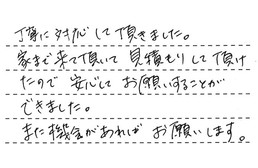 丁寧に対応して頂きました。
家まで来て頂いて見積もりして頂け
たので安心してお願いすることが
できました。
また機会があればお願いします。